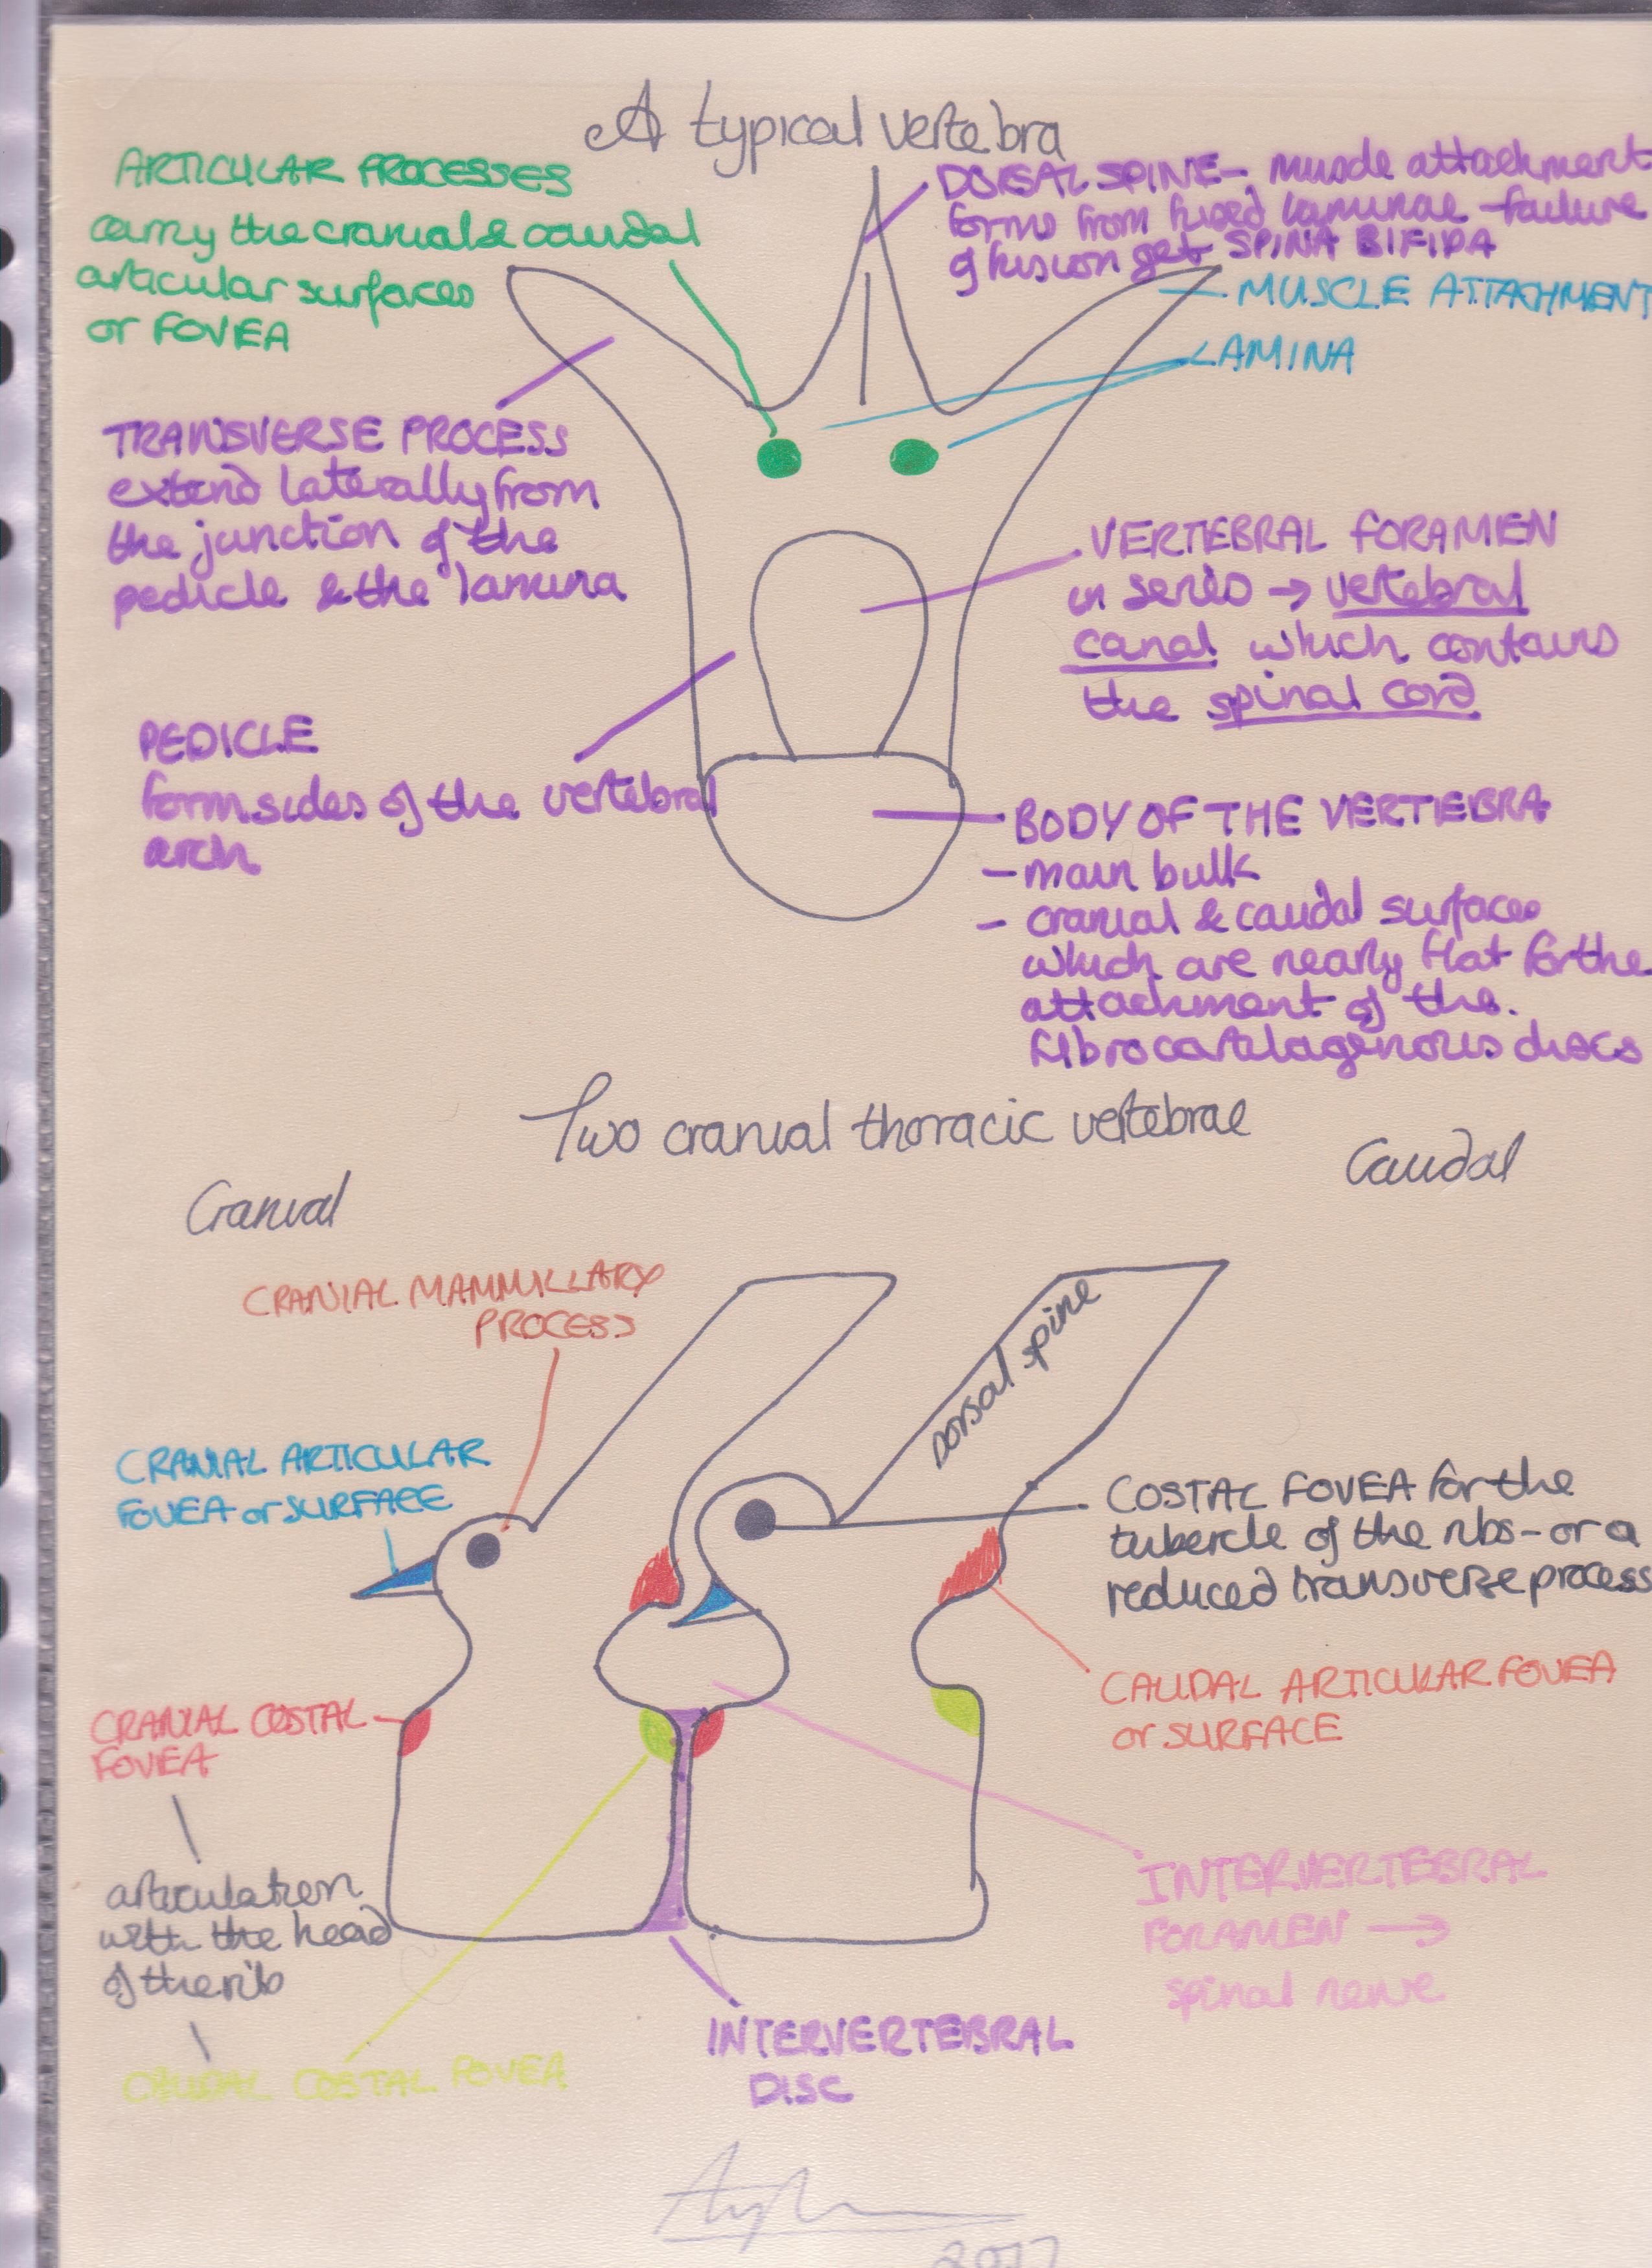 A typical vertebra
ARTICULAR PROCESSES
carry the cranial & caudal
articular surfaces
or FOVEA
DORSAL SPINE - muscle attachment
forms from fused laminae - failure
of fusion get SPINA BIFIDA
MUSCLE ATTACHMENT
LAMINA
TRANSVERSE PROCESS
extend laterally from
the junction of the
pedicle & the lamina
VERTEBRAL FORAMEN
in series → vertebral
canal which contains
the spinal cord
PEDICLE
form sides of the vertebral
arch
BODY OF THE VERTEBRA
- main bulk
- cranial & caudal surfaces
which are nearly flat for the
attachment of the
fibrocartilagenous discs
Two cranial thorracic vertebrae
Cranial
Caudal
CRANIAL MAMMILLARY
PROCESS
Dorsal spine
CRANIAL ARTICULAR
FOVEA or SURFACE
COSTAL FOVEA for the
tubercle of the ribs - or a
reduced transverse process
CAUDAL ARTICULAR FOVEA
or SURFACE
CRANIAL COSTAL
FOVEA
articulation
with the head
of the rib
INTERVERTEBRAL
FORAMEN →
spinal nerve
CAUDAL COSTAL FOVEA
INTERVERTEBRAL
DISC
2017